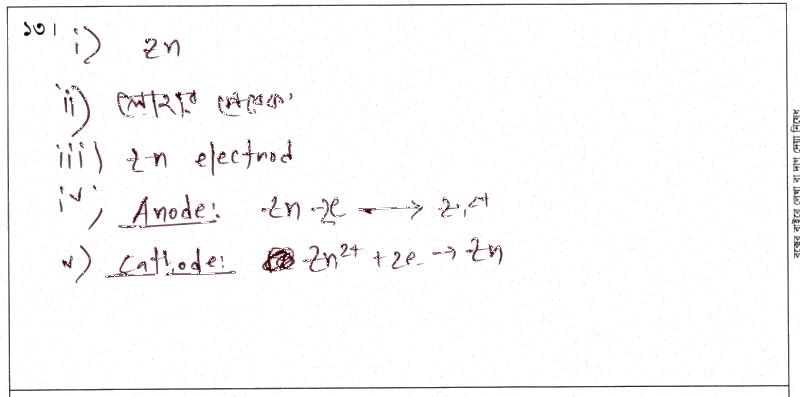 ১৩।
i) Zn
ii) লোহার পেরেক
iii) Zn electrod
iv) Anode: Zn - 2e → Zn²⁺
v) Cathode: Zn²⁺ + 2e → Zn
বক্সের বাইরে লেখা বা দাগ দেয়া নিষেধ